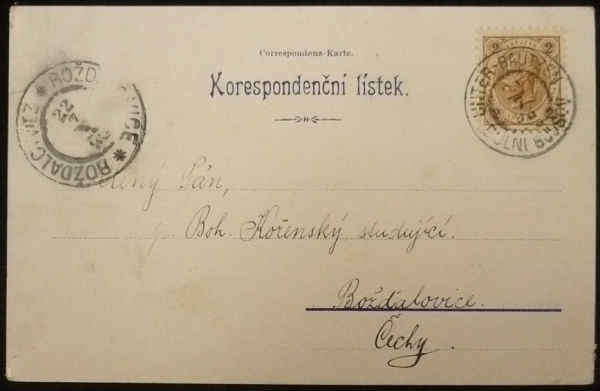 Correspondenz-Karte.
Korespondenční lístek.
ROŽĎALOVICE
ROŽDALOWITZ
22
7
2
2
UNTER-BAUTZEN
DOLNÍ BOUSOV
Pán,
p. Boh. Kořenský studující.
Božďalovice.
Čechy.